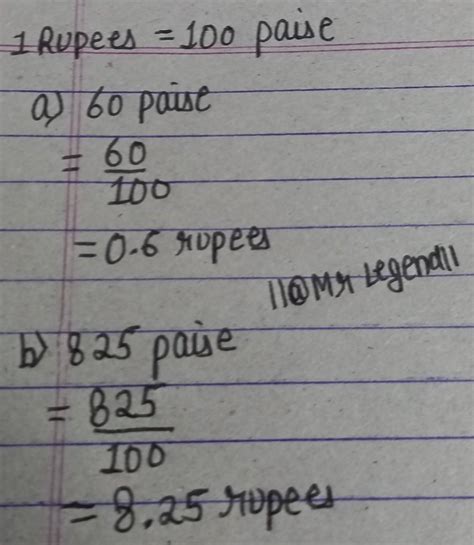 1 Rupees = 100 paise
a) 60 paise
= 60/100
= 0.6 rupees
||@Mr Legend||
b) 825 paise
= 825/100
= 8.25 rupees